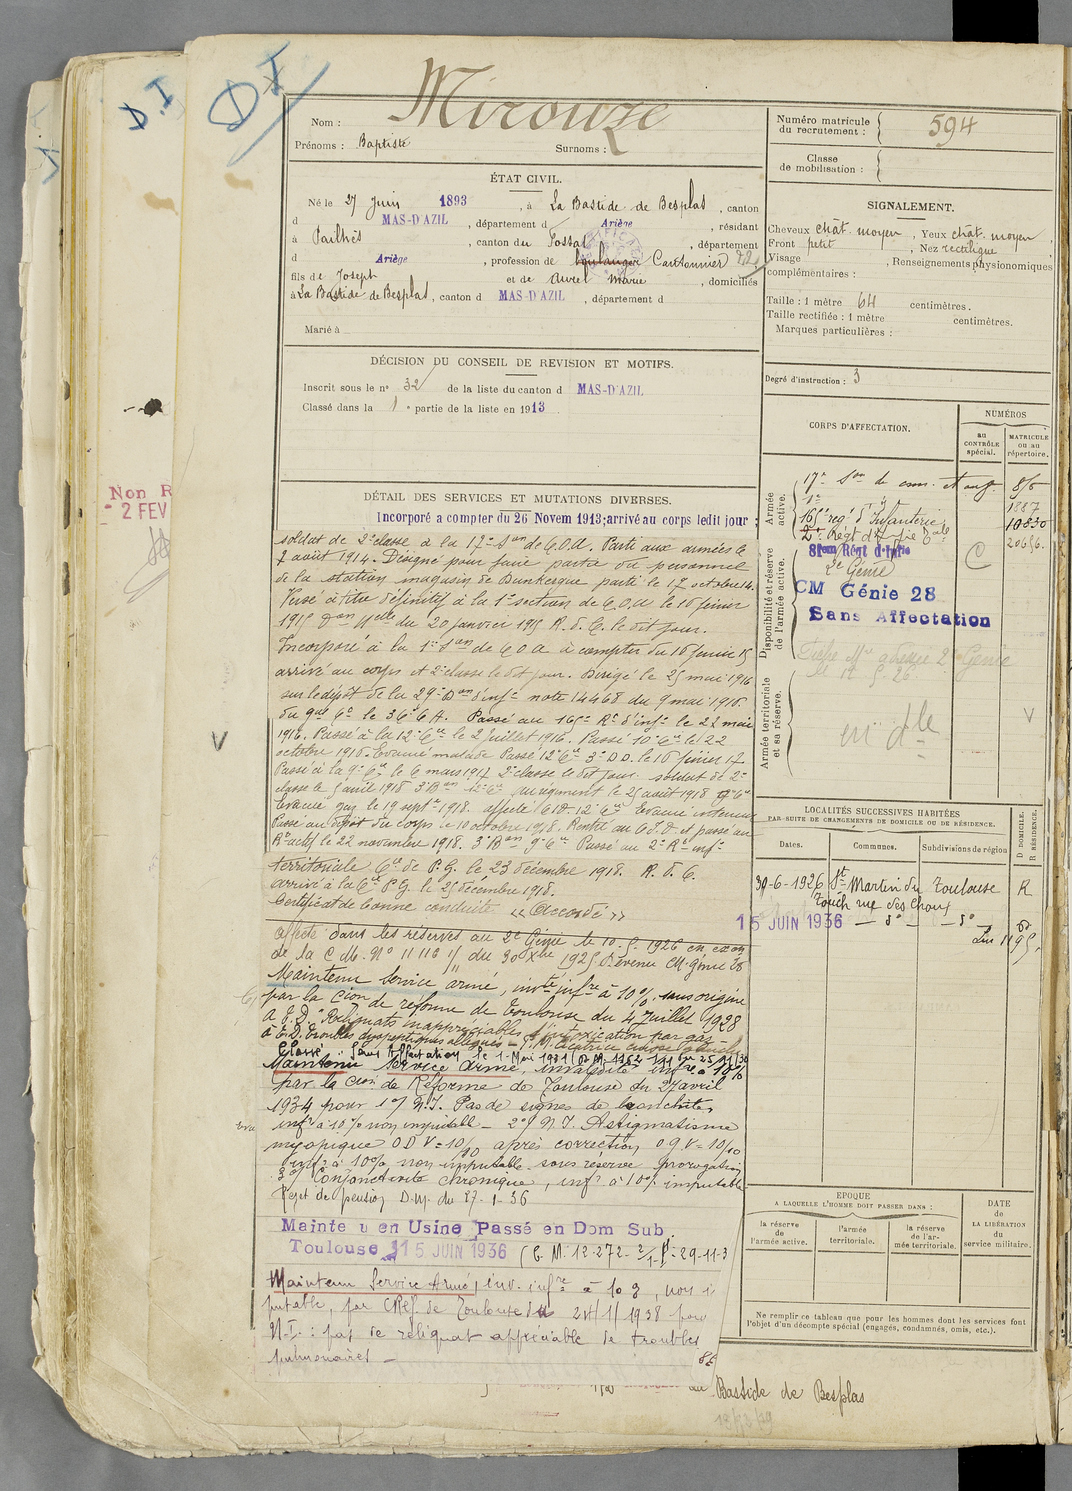 D I
D I
Nom : Mirouze
Prénoms : Baptiste Surnoms :
Numéro matricule du recrutement : 594
Classe de mobilisation :
ÉTAT CIVIL.
Né le 27 Juin 1893, à La Bastide de Besplas, canton
d MAS-D'AZIL, département d Ariège, résidant
à Pailhès, canton du Fossat, département
d Ariège, profession de boulanger Cartonnier
fils de Joseph et de Marie, domiciliés
à La Bastide de Besplas, canton d MAS-D'AZIL, département d
Marié à
SIGNALEMENT.
Cheveux chât. moyen, Yeux chât. moyen
Front petit, Nez rectiligne
Visage , Renseignements physionomiques
complémentaires :
Taille : 1 mètre 64 centimètres.
Taille rectifiée : 1 mètre centimètres.
Marques particulières :
Degré d'instruction : 3
DÉCISION DU CONSEIL DE REVISION ET MOTIFS.
Inscrit sous le nº 32 de la liste du canton d MAS-D'AZIL
Classé dans la 1e partie de la liste en 1913
DÉTAIL DES SERVICES ET MUTATIONS DIVERSES.
Incorporé a compter du 26 Novem 1913; arrivé au corps ledit jour
soldat de 2e classe à la 17e Son de C.O.A. Parti aux armées le
7 août 1914. Désigné pour faire partie du personnel
de la station magasin de Dunkerque parti le 17 octobre 14.
Versé à titre définitif à la 1e section de C.O.A le 16 février
1915 du 20 janvier 1915 A. d. C. le dit jour.
Incorporé à la 1e Son de C O A à compter du 16 février 15
arrivé au corps et 2e classe le dit jour. Dirigé le 25 mai 1916
sur le dépôt de la 29e Don d'inf. note 14468 du 9 mai 1916.
Passé au 165e Rt d'inf. le 22 mai
1916. Passé à la 12e Cie le 2 juillet 1916. Passé 10e Cie le 22
octobre 1916. Evacué malade Passé 12e Cie 3e D.D. le 16 février 17
Passé à la 9e Cie le 6 mars 1917 2e classe le dit jour. soldat de 2e
classe le 5 avril 1918 3e Bon 12e Cie au régiment le 25 août 1918
Evacué gaz le 19 sept. 1918. affecté 12e Cie Evacué intérieur
Passé au dépôt du corps le 10 octobre 1918. Rentré au C.I.D. et passé au
Rt actif le 22 novembre 1918. 3e Bon 9e Cie Passé au 2e Rt inf.
territoriale Cie de P.G. le 23 décembre 1918. A. d. C.
arrivé à la Cie P.G. le 25 décembre 1918.
Certificat de bonne conduite « Accordé »
Affecté dans les réserves au 2e Génie le 10-5-1926 en exon
de la C.M. Nº 11 118 du 30 Xbre 1925 Devenu CM Génie 28
Maintenu Service armé, invté infre à 10% sans origine
par la Cion de réforme de Toulouse du 4 Juillet 1928
Classé "Sans Affectation" le 1 Mai 1931
Maintenu Service Armé, invalidité infre à 10%
par la Cion de Réforme de Toulouse du 27 avril
1934 pour 1º/ N.I. Pas de signes de bronchite,
infre à 10% non imputable - 2º/ N.I. Astigmatisme
myopique O D V = 10/10 après correction O G V = 10/10
infre à 10% non imputable sous réserve prorogation
3º/ Conjonctivite chronique, infre à 10% imputable
Rejet de pension D.M. du 27-1-36
Mainte u en Usine Passé en Dom Sub
Toulouse 15 JUIN 1936 (C. M. 12.272-
Maintenu Service Armé, inv. infre à 10 %, non im
putable, par CRéf. de Toulouse du 24/11/1938 pour
N.I. : pas de reliquat appréciable de troubles
pulmonaires -
CORPS D'AFFECTATION.
NUMÉROS
au CONTRÔLE spécial.
MATRICULE ou au répertoire.
Armée active.
17e Son de com. et ouv. 8/6
1e 1887
165e rég. d'Infanterie 10830
2e Régt d'Infie Tale 20656.
Disponibilité et réserve de l'armée active.
81em Régt d'Infie
2e Génie
CM Génie 28
Sans Affectation
Armée territoriale et sa réserve.
C
V
V
LOCALITÉS SUCCESSIVES HABITÉES
PAR SUITE DE CHANGEMENTS DE DOMICILE OU DE RÉSIDENCE.
Dates.
Communes.
Subdivisions de région
D DOMICILE. R RÉSIDENCE.
30-6-1926 St Martin du Touch rue des Choux Toulouse R
15 JUIN 1936 - dº - - dº - D
EPOQUE
A LAQUELLE L'HOMME DOIT PASSER DANS :
la réserve de l'armée active.
l'armée territoriale.
la réserve de l'armée territoriale.
DATE de LA LIBÉRATION du service militaire.
Ne remplir ce tableau que pour les hommes dont les services font
l'objet d'un décompte spécial (engagés, condamnés, omis, etc.).
Bastide de Besplas
Non R
2 FEV